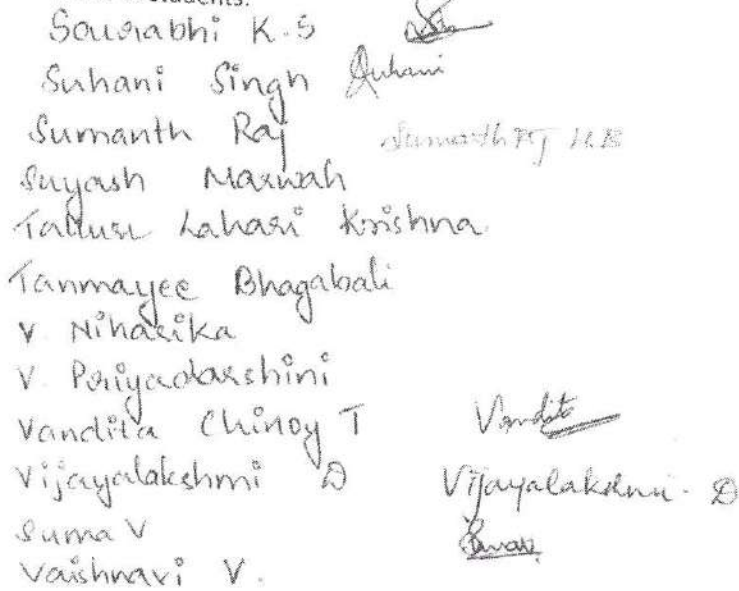 students.
Sourabhi K.S
Suhani Singh Suhani
Sumanth Raj Sumanth Raj H.B
Suyash Marwah
Lahari Krishna
Tanmayee Bhagabali
V Niharika
V. Priyadarshini
Vandita Chinoy T Vandita
Vijayalakshmi D Vijayalakshmi. D
Suma V
Vaishnavi V.